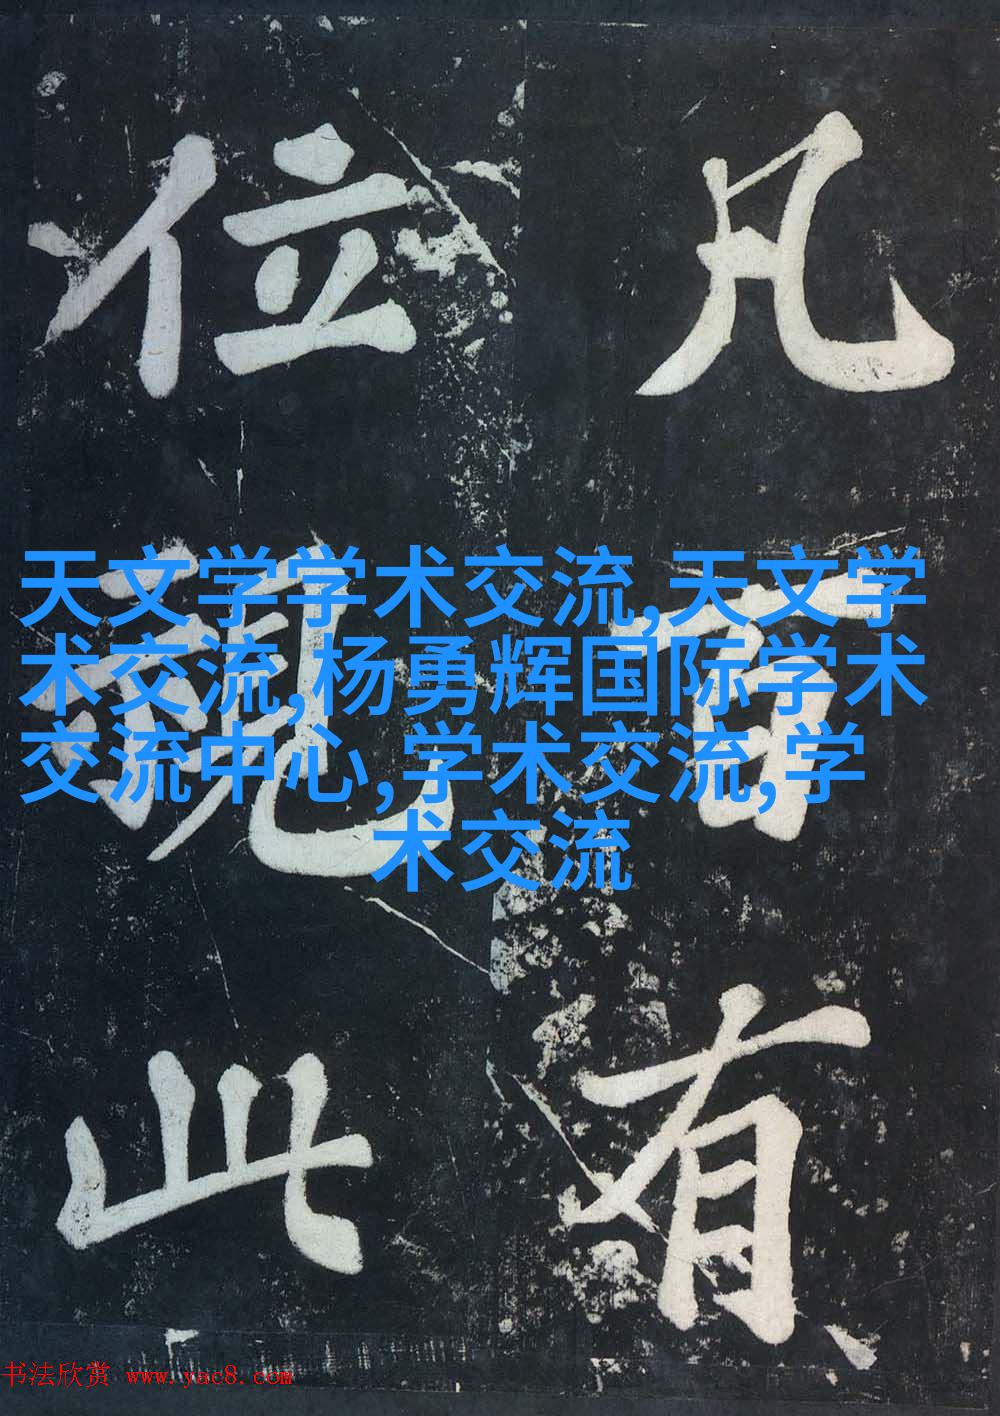 凡百有
位視此
天文学学术交流,天文学
术交流,杨勇辉国际学术
交流中心,学术交流,学
术交流
书法欣赏 www.yac8.com